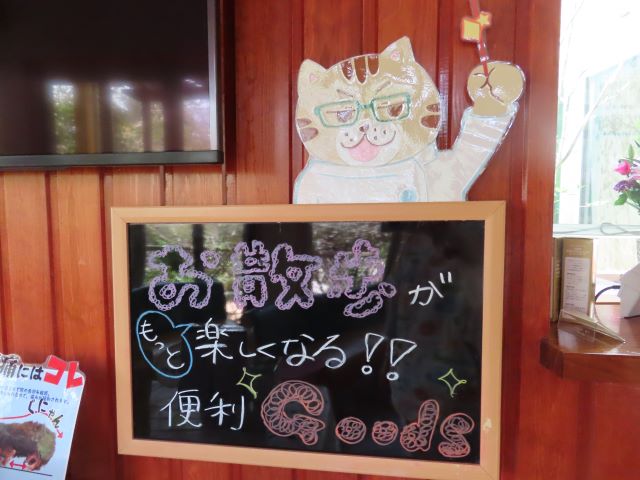 お散歩が
もっと楽しくなる!!
便利Goods
痛にはコレ
しにゃん